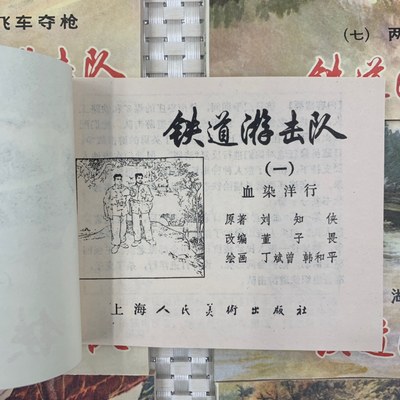 飞车夺枪
游击队
(七) 两
铁道
铁道游击队
(一)
血染洋行
原著 刘知侠
改编 董子畏
绘画 丁斌曾 韩和平
上海人民美术出版社
铁道